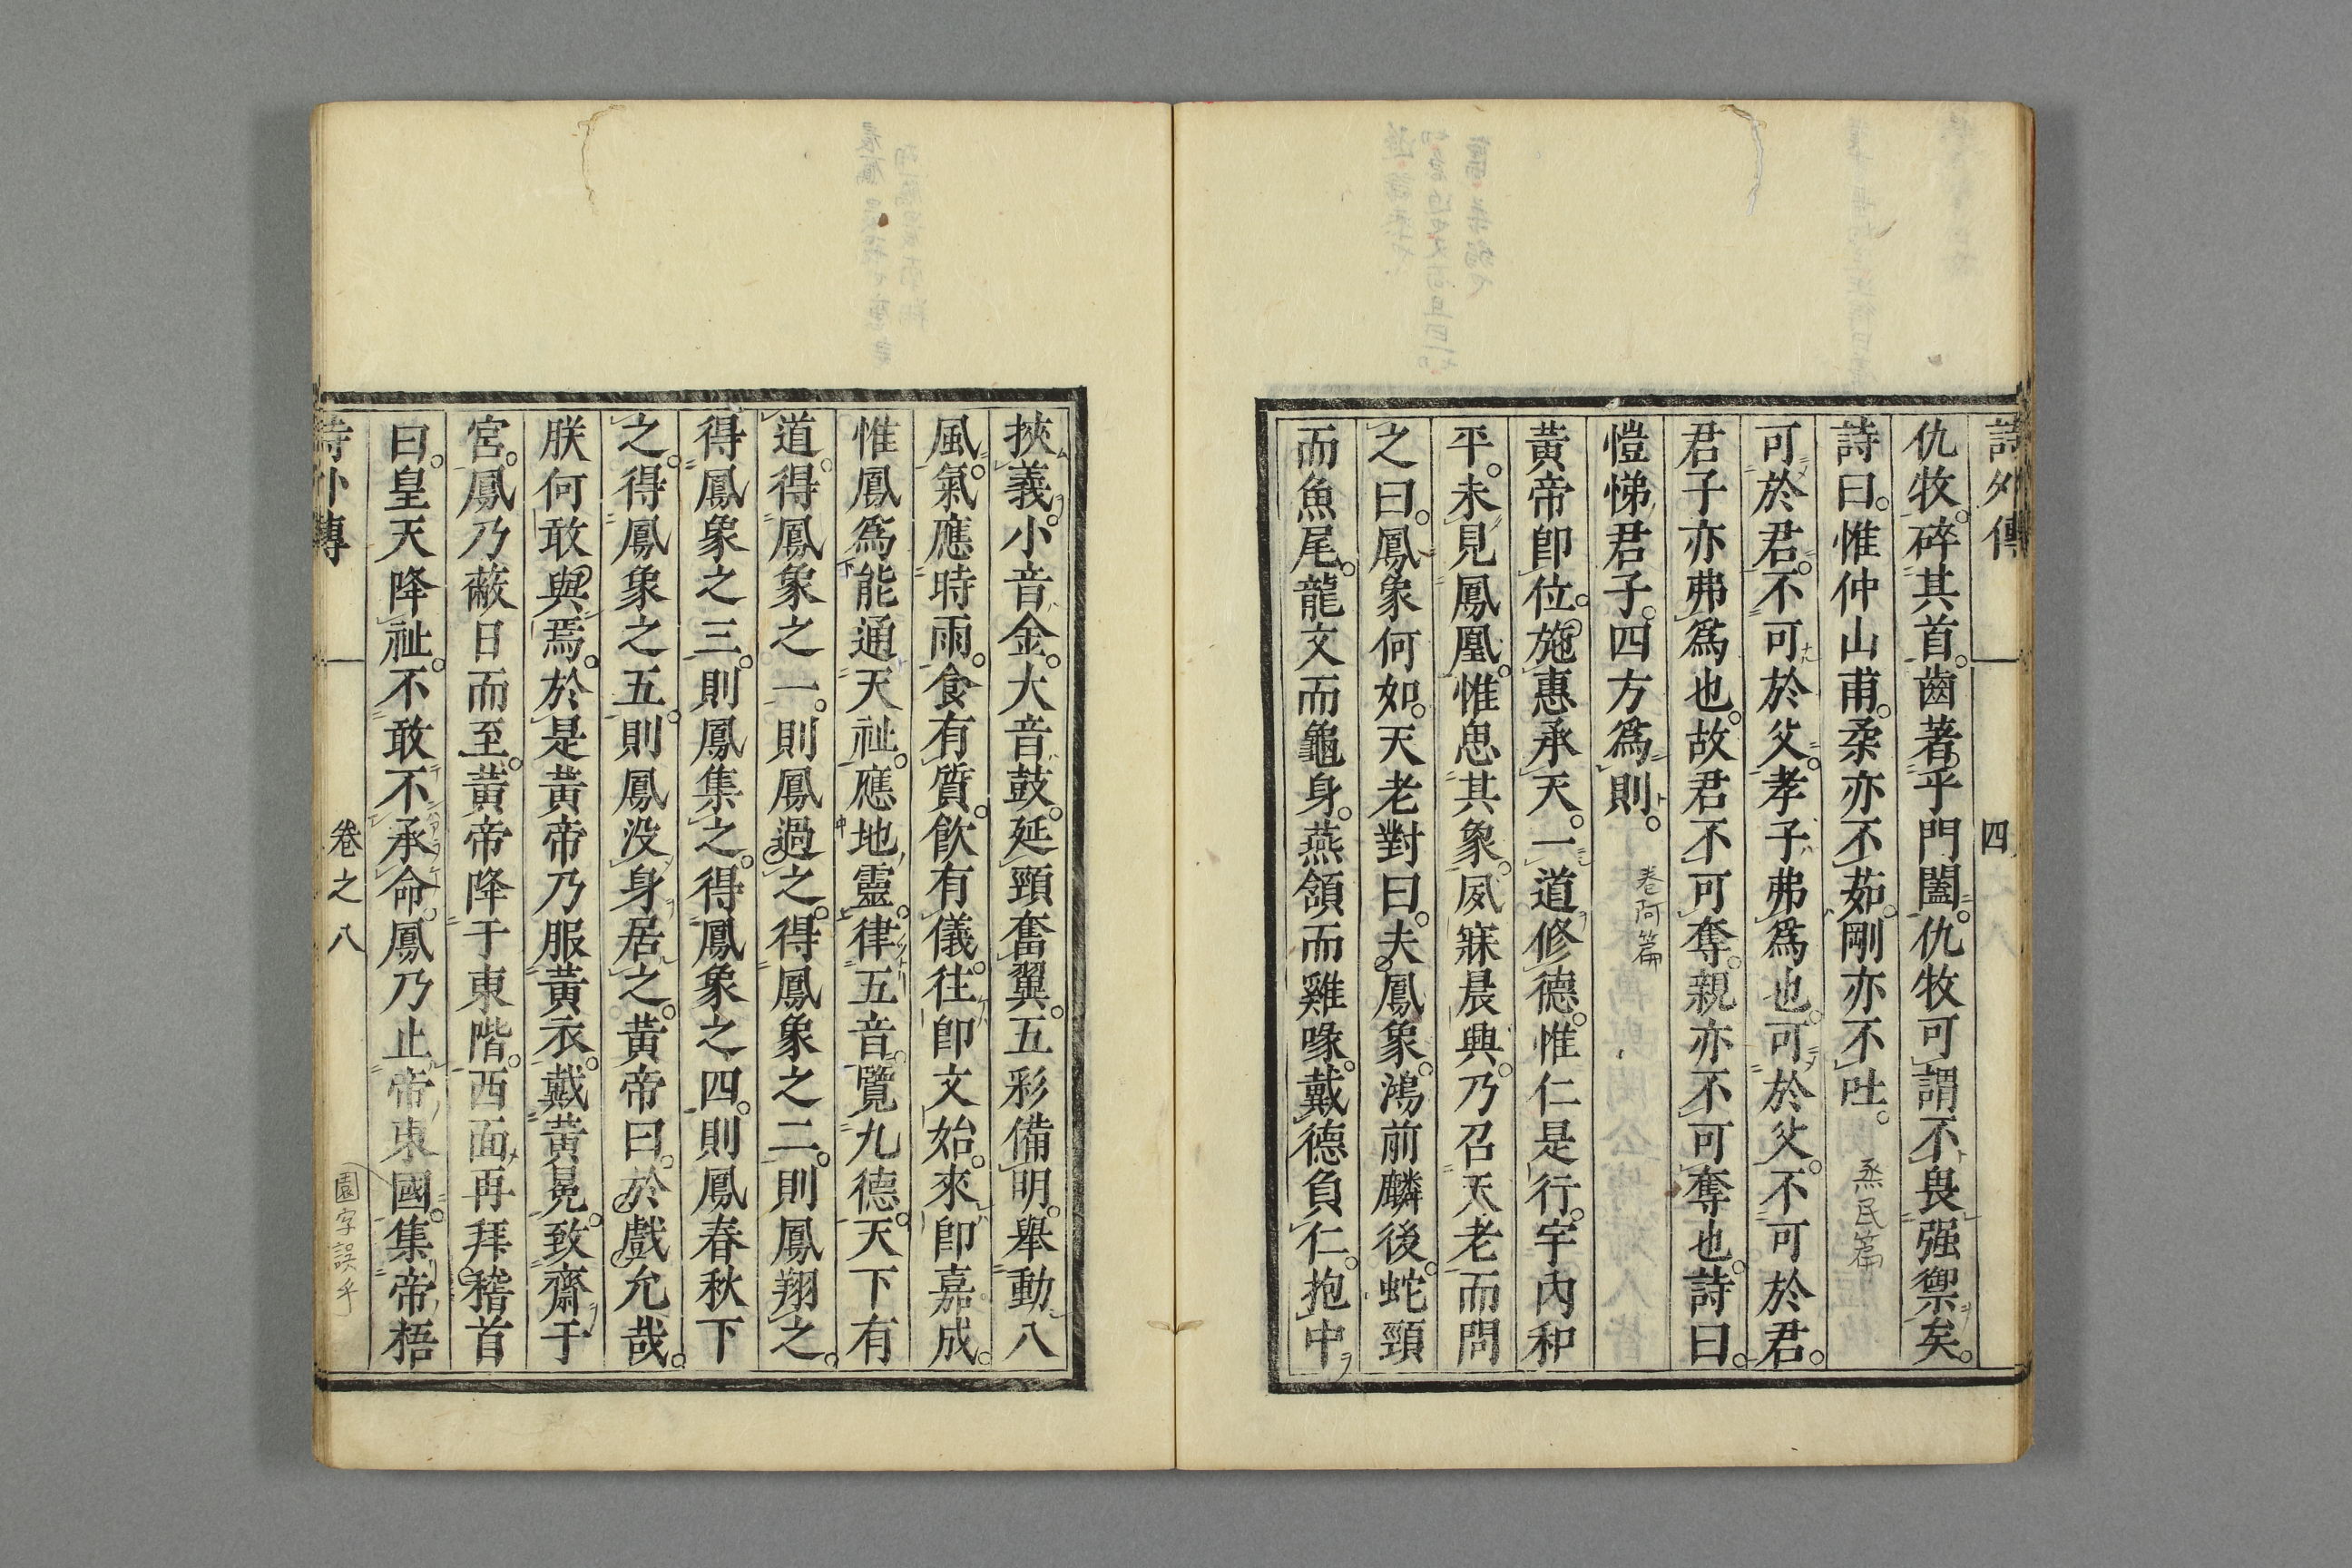 詩外傳 四
仇牧。碎其首。齒著乎門闔。仇牧可謂不畏强禦矣。
詩曰。惟仲山甫。柔亦不茹。剛亦不吐。 烝民篇
可於君。不可於父。孝子弗爲也。可於父。不可於君。
君子亦弗爲也。故君不可奪。親亦不可奪也。詩曰。
愷悌君子。四方爲則。 卷阿篇
黃帝卽位。施惠承天。一道修德。惟仁是行。宇內和
平。未見鳳凰。惟思其象。夙寐晨興。乃召天老而問
之曰。鳳象何如。天老對曰。夫鳳象。鴻前麟後。蛇頸
而魚尾。龍文而龜身。燕頷而雞喙。戴德負仁。抱中
挾義。小音金。大音鼓。延頸奮翼。五彩備明。舉動八
風。氣應時雨。食有質。飮有儀。往卽文始。來卽嘉成。
惟鳳爲能通天祉。應地靈。律五音。覽九德。天下有
道。得鳳象之一。則鳳過之。得鳳象之二。則鳳翔之。
得鳳象之三。則鳳集之。得鳳象之四。則鳳春秋下
之。得鳳象之五。則鳳没身居之。黃帝曰。於戲允哉。
朕何敢與焉。於是黃帝乃服黃衣。戴黃冕。致齋于
宮。鳳乃蔽日而至。黃帝降于東階。西面再拜稽首
曰。皇天降祉。不敢不承命。鳳乃止帝東國。集帝梧
詩外傳 卷之八
園字誤乎